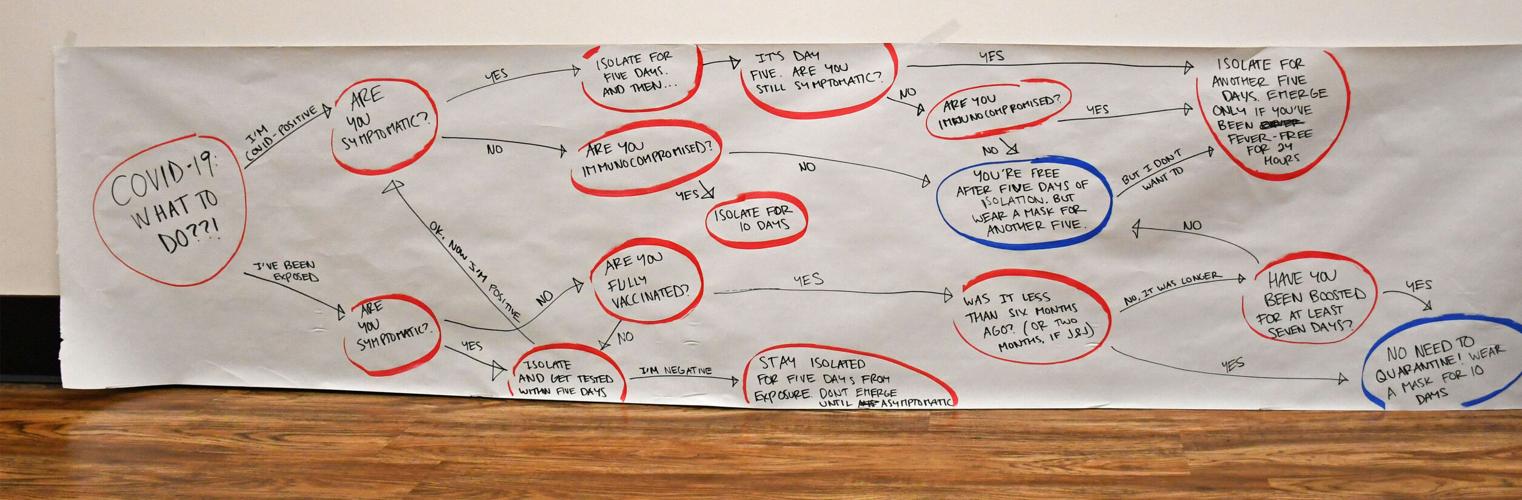 COVID-19:
WHAT TO
DO??!
I'M
COVID-POSITIVE
ARE
YOU
SYMPTOMATIC?
YES
ISOLATE FOR
FIVE DAYS.
AND THEN...
IT'S DAY
FIVE. ARE YOU
STILL SYMPTOMATIC?
YES
ISOLATE FOR
ANOTHER FIVE
DAYS. EMERGE
ONLY IF YOU'VE
BEEN
FEVER-FREE
FOR 24
HOURS
NO
ARE YOU
IMMUNOCOMPROMISED?
YES
NO
NO
ARE YOU
IMMUNOCOMPROMISED?
NO
YES
ISOLATE FOR
10 DAYS
YOU'RE FREE
AFTER FIVE DAYS OF
ISOLATION. BUT
WEAR A MASK FOR
ANOTHER FIVE.
BUT I DON'T
WANT TO
I'VE BEEN
EXPOSED
ARE
YOU
SYMPTOMATIC?
NO
YES
OK, NOW I'M POSITIVE
ARE YOU
FULLY
VACCINATED?
NO
YES
ISOLATE
AND GET TESTED
WITHIN FIVE DAYS
I'M NEGATIVE
STAY ISOLATED
FOR FIVE DAYS FROM
EXPOSURE. DON'T EMERGE
UNTIL ASYMPTOMATIC
WAS IT LESS
THAN SIX MONTHS
AGO? (OR TWO
MONTHS, IF J&J)
NO, IT WAS LONGER
YES
HAVE YOU
BEEN BOOSTED
FOR AT LEAST
SEVEN DAYS?
NO
YES
NO NEED TO
QUARANTINE! WEAR
A MASK FOR 10
DAYS